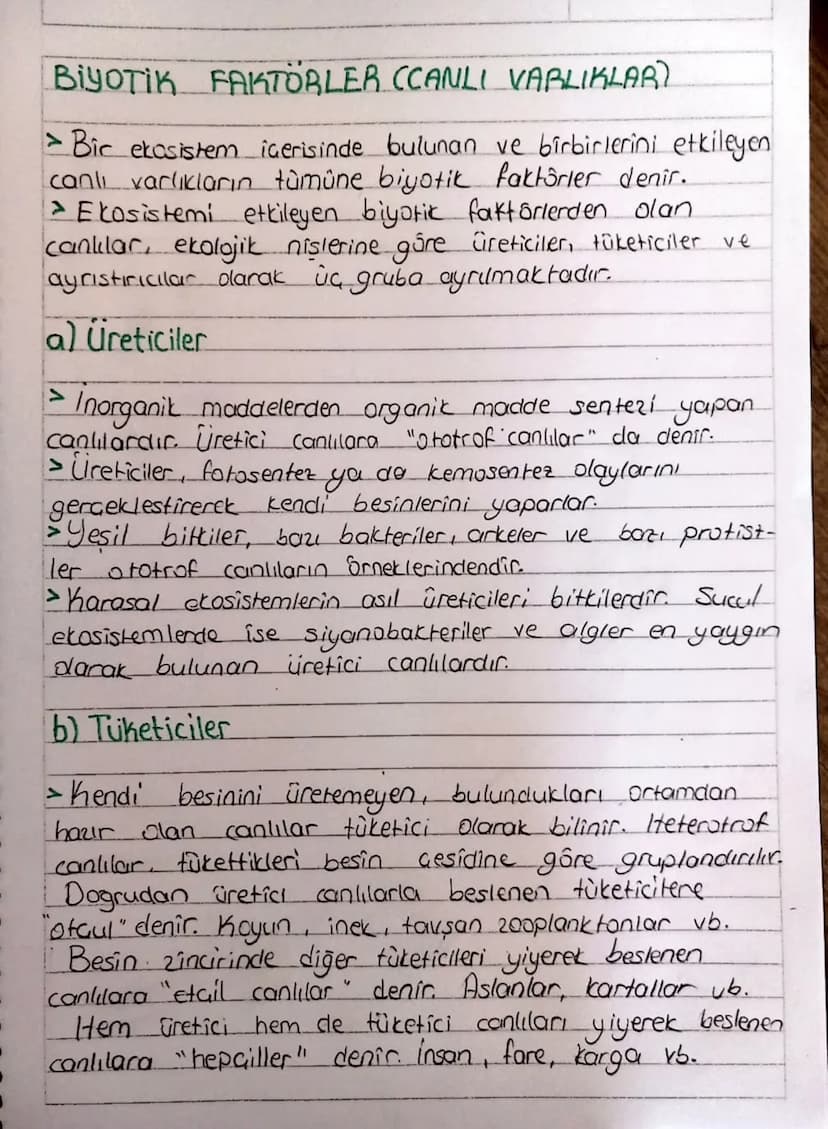 BİYOTİK FAKTÖRLER (CANLI VARLIKLAR)
> Bir ekosistem içerisinde bulunan ve birbirlerini etkileyen
canlı varlıkların tümüne biyotik faktörler denir.
> Ekosistemi etkileyen biyotik faktörlerden olan
canlılar, ekolojik nişlerine göre üreticiler, tüketiciler ve
ayrıştırıcılar olarak üç gruba ayrılmaktadır.
a) Üreticiler
> İnorganik maddelerden organik madde sentezi yapan
canlılardır. Üretici canlılara "ototrof canlılar" da denir.
> Üreticiler, fotosentez ya da kemosentez olaylarını
gerçekleştirerek kendi besinlerini yaparlar.
> Yeşil bitkiler, bazı bakteriler, arkeler ve bazı protist-
ler ototrof canlıların örneklerindendir.
> Karasal ekosistemlerin asıl üreticileri bitkilerdir. Sucul
ekosistemlerde ise siyanobakteriler ve algler en yaygın
olarak bulunan üretici canlılardır.
b) Tüketiciler
> Kendi besinini üretemeyen, bulundukları ortamdan
hazır alan canlılar tüketici olarak bilinir. Heterotrof
canlılar, tükettikleri besin çeşidine göre gruplandırılır.
Doğrudan üretici canlılarla beslenen tüketicilere
"otçul" denir. Koyun, inek, tavşan zooplanktonlar vb.
Besin zincirinde diğer tüketicileri yiyerek beslenen
canlılara "etçil canlılar" denir. Aslanlar, kartallar vb.
Hem üretici hem de tüketici canlıları yiyerek beslenen
canlılara "hepçiller" denir. İnsan, fare, karga vb.